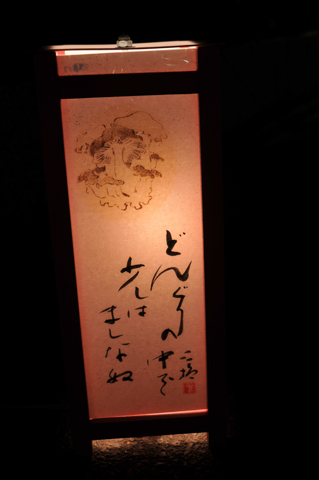 どんぐりの中で
少しは
ましな奴